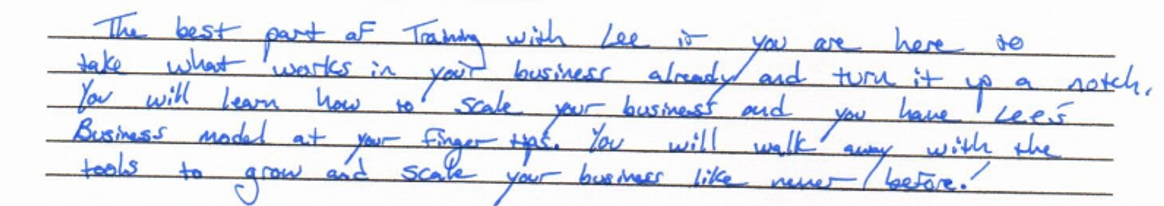 The best part of Training with Lee is you are here to
take what works in your business already and turn it up a notch.
You will learn how to scale your business and you have Lee's
Business model at your finger tips. You will walk away with the
tools to grow and scale your business like never before!